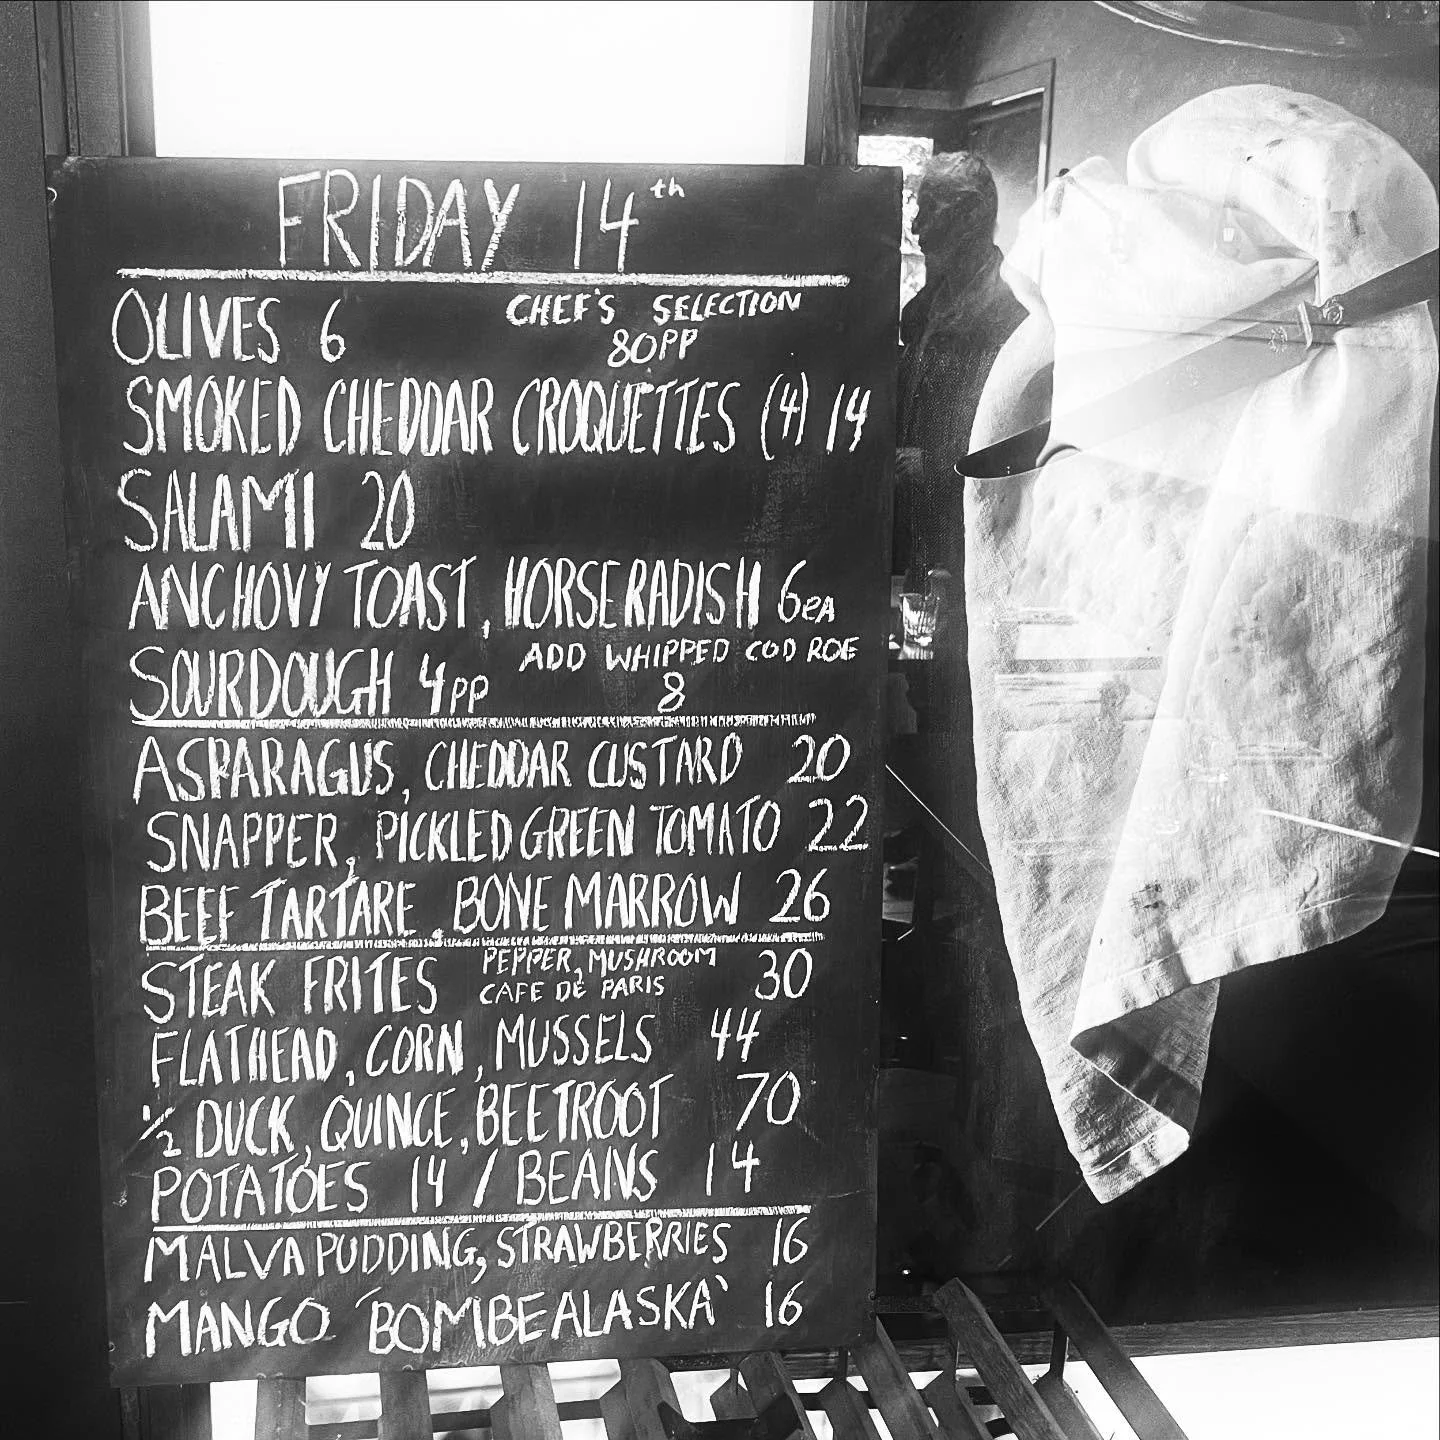 FRIDAY 14th
OLIVES 6
CHEF'S SELECTION
80PP
SMOKED CHEDDAR CROQUETTES (4) 14
SALAMI 20
ANCHOVY TOAST, HORSERADISH 6EA
SOURDOUGH 4PP
ADD WHIPPED COD ROE
8
ASPARAGUS, CHEDDAR CUSTARD 20
SNAPPER, PICKLED GREEN TOMATO 22
BEEF TARTARE, BONE MARROW 26
STEAK FRITES PEPPER, MUSHROOM 30
CAFE DE PARIS
FLATHEAD, CORN, MUSSELS 44
1/2 DUCK, QUINCE, BEETROOT 70
POTATOES 14 / BEANS 14
MALVA PUDDING, STRAWBERRIES 16
MANGO 'BOMBE ALASKA' 16